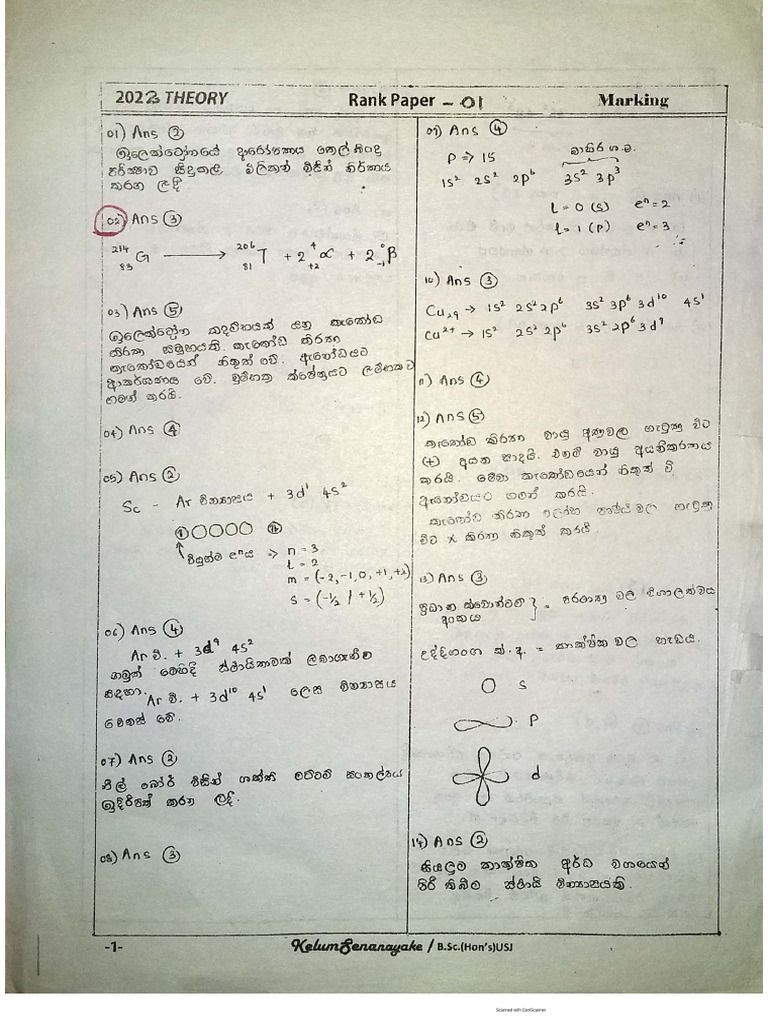 2023 THEORY Rank Paper - 01 Marking
01) Ans ②
ඉලෙක්ට්‍රෝනයේ ආරෝපණය තෙල් බිංදු
පරීක්ෂාව සිදුකළ මිලිකන් විසින් නිර්ණය
කරන ලදී
02) Ans ③
²¹⁴₈₃G ⟶ ²⁰⁶₈₁T + 2 ⁴₊₂α + 2 ⁰₋₁β
03) Ans ⑤
ඉලෙක්ට්‍රෝන කදම්භයක් යනු කැතෝඩ
කිරණ සමුහයකි. කැතෝඩ කිරණ
කැතෝඩයෙන් නිකුත් වේ. ඇනෝඩයට
ආකර්ශණය වේ. චුම්භක ක්ෂේත්‍රයට ලම්භකව
ගමන් කරයි.
04) Ans ④
05) Ans ②
Sc - Ar වින්‍යාසය + 3d¹ 4s²
වියුග්ම eⁿය => n = 3
l = 2
m = (-2, -1, 0, +1, +2)
s = (-½ / +½)
06) Ans ④
Ar වි. + 3d⁹ 4s²
ගමුත් මෙහිදී ස්ථායිතාවක් ලබාගැනීම
සඳහා. Ar වි. + 3d¹⁰ 4s¹ ලෙස වින්‍යාසය
වෙනස් වේ.
07) Ans ②
නීල් බෝර් විසින් ශක්ති මට්ටම් සංකල්පය
ඉදිරිපත් කරන ලදී.
08) Ans ③
09) Ans ④
P => 15 බාහිර ශ.ම.
1s² 2s² 2p⁶ 3s² 3p³
l = 0 (s) eⁿ = 2
l = 1 (p) eⁿ = 3
10) Ans ③
Cu₂₉ → 1s² 2s² 2p⁶ 3s² 3p⁶ 3d¹⁰ 4s¹
Cu²⁺ → 1s² 2s² 2p⁶ 3s² 2p⁶ 3d⁹
11) Ans ④
12) Ans ⑤
කැතෝඩ කිරණ වායු අණුවල ගැටුණු විට
(+) අයන සාදයි. එනම් වායු අයනීකරණය
කරයි. මේවා කැතෝඩයෙන් නිකුත් වී
ඇනෝඩයට ගමන් කරයි.
කැතෝඩ කිරණ ලෝහ පෘෂ්ඨ වල ගැටුණු
විට X කිරණ නිකුත් කරයි.
13) Ans ③
ප්‍රධාන ක්වොන්ටම් අංකය } = පරමාණු වල විශාලත්වය
උද්දිගංශ ක්.අ. = කාක්ෂික වල හැඩය.
s
p
d
14) Ans ②
සියලුම කාක්ෂික අර්ධ වශයෙන්
පිරී තිබීම ස්ථායි වින්‍යාසයකි.
-1- Kelum Senanayake / B.Sc.(Hon's)USJ
Scanned with CamScanner